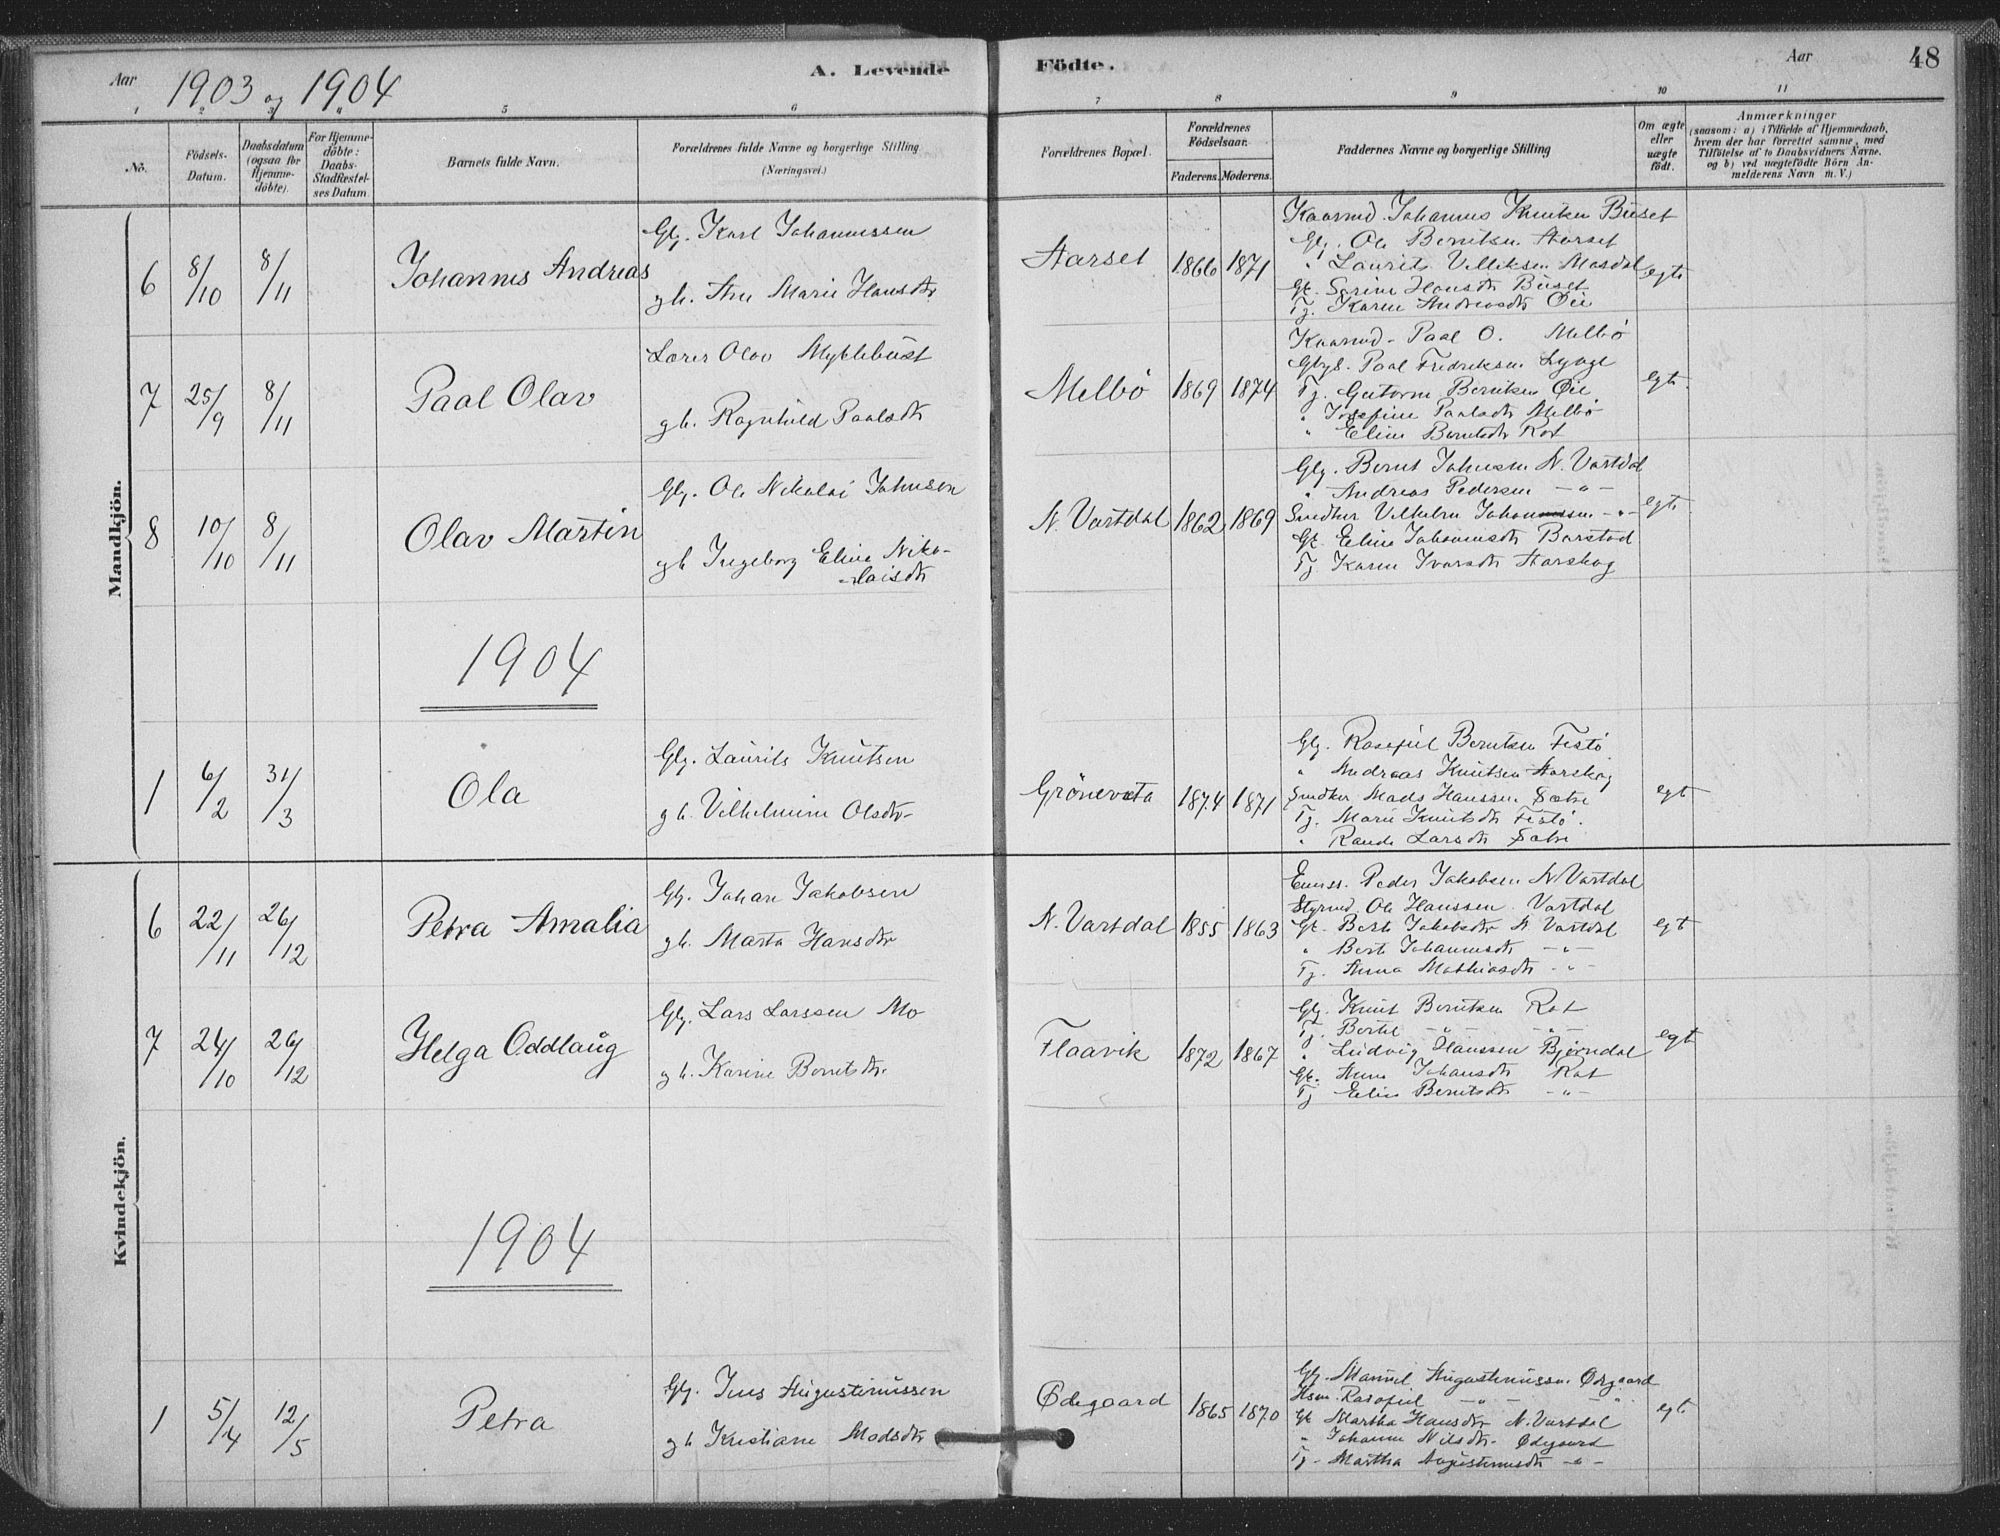 Aar 1903 og 1904
A. Levende Födte.
Aar
48
1 2 3 4 5 6 7 8 9 10 11
No.
Födsels-
Datum.
Daabsdatum
(ogsaa for
Hjemme-
döbte).
For Hjemme-
döbte:
Daabs-
StadfæsteI-
ses Datum
Barnets fulde Navn.
Forældrenes fulde Navne og borgerlige Stilling
(Næringsvei.)
Forældrenes Bopæl.
Forældrenes
Födselsaar.
Faderens. Moderens.
Faddernes Navne og borgerlige Stilling
Om ægte
eller
uægte
födt.
Anmærkninger
(saasom: a) i Tilfælde af Hjemmedaab,
hvem der har forrettet samme, med
Tilföielse af to Daabsvidners Navne.
og b) ved uægtefödte Börn An-
melderens Navn m. V.)
Mandkjön.
6 8/10 8/11 Johannes Andreas
Gbr. Karl Johannessen
gh. Ane Marie Hansdtr
Aarset 1866 1871
Kaarmd. Johannes Knutsen Buset
Gbr. Ole Berntsen Aarset
" Laurits Villiksen Masdal
Gk. Sarine Hansdtr Buset
Tj. Karen Andreasdtr Øie
egte
7 25/9 8/11 Paal Olav
Lærer Olav Myklebust
gh. Ragnhild Paalsdtr
Melbö 1869 1874
Kaarmd. Paal O. Melbö
Paal Fredriksen Lyngе
Tj. Guttorm Berntsen Øie
" Josefine Paalsdtr Melbö
" Eline Berntsdtr Rot
egte
8 10/10 8/11 Olav Martin
Gbr. Ole Nikolai Johnsen
gh Ingeborg Eline Niko-
laisdtr
N. Vartdal 1862 1869
Gbr. Bernt Johnsen N. Vartdal
" Andreas Pedersen -"-
Snedker Vilhelm Johannessen -"-
Gk. Eline Johannesdtr Barstad
Tj. Karen Ivarsdtr Aarskog
egte
1904
1 6/2 31/3 Ola
Gbr. Laurits Knutsen
gh. Vilhelmine Olsdtr
Grönevæta 1874 1871
Gbr. Rasefiel Berntsen Festö
" Andreas Knutsen Aarskog
Snedker Mads Hanssen Sætre
Tj. Marie Knutsdtr Festö.
" Rande Larsdtr Sætre
egt
Kvindekjön.
6 22/11 26/12 Petra Amalia
Gbr. Johan Jakobsen
gh. Marta Hansdtr
N. Vartdal 1855 1863
Peder Jakobsen N Vartdal
Styrmd. Ole Hanssen Vartdal
Gk. Berte Jakobsdtr N Vartdal
" Berte Johannesdtr -"-
Tj. Anna Mathiasdtr -"-
egt
7 24/10 26/12 Helga Oddlaug
Gbr. Lars Larssen Mo
gh. Karine Berntsdtr.
Flaavik 1872 1867
Gbr. Knut Berntsen Rot
Tj. Bertel -"- -"-
" Ludvig Hanssen Bjørndal
Gk. Anne Johansdtr Rot
Tj Eline Berntsdtr -"-
egt
1904
1 5/4 12/5 Petra
Gbr. Jens Augustinussen
gh Kristiane Madsdtr
Ødegaard 1865 1870
Gbr. Manuel Augustinussen Ødegaard
Hsm. Rasefiel -"- -"-
Gk Martha Hansdtr N. Vartdal
" Johanne Nilsdtr. Ødegaard
Tj. Martha Augustinusdtr -"-
egt.